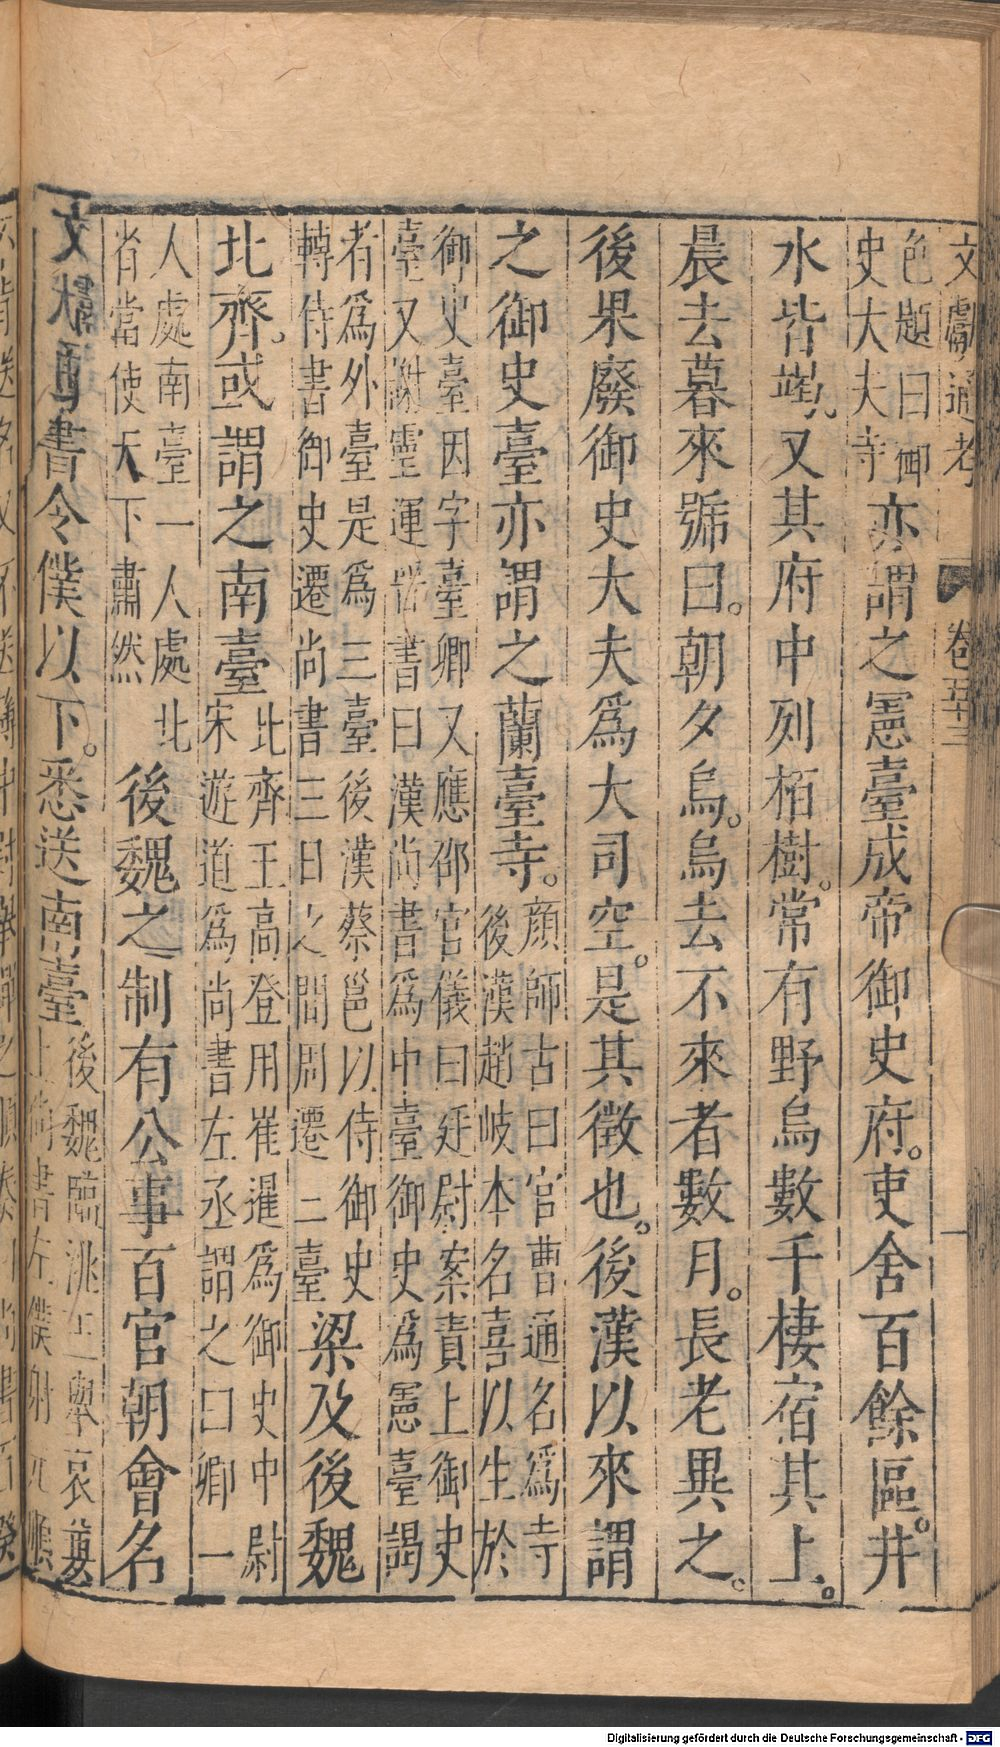 文獻通考 卷五十三 一
色題曰御
史大夫寺
亦謂之憲臺成帝御史府。吏舍百餘區。井
水皆竭。又其府中列栢樹。常有野烏數千棲宿其上。
晨去暮來號曰。朝夕烏。烏去不來者數月。長老異之。
後果廢御史大夫爲大司空。是其徵也。後漢以來謂
之御史臺亦謂之蘭臺寺。
顔師古曰官曹通名爲寺
後漢趙岐本名嘉以生於
御史臺因字臺卿又應邵官儀曰廷尉案責上御史
臺又謝靈運晉書曰漢尚書爲中臺御史爲憲臺謁
者爲外臺是爲三臺後漢蔡邕以侍御史
轉侍書御史遷尚書三日之間周遷二臺
梁及後魏
北齊。或謂之南臺
北齊王高登用崔暹爲御史中尉
宋遊道爲尚書左丞謂之曰卿一
人處南臺一人處北
省當使天下肅然
後魏之制有公事百官朝會名
書令僕以下。悉送南臺
後魏臨洮王舉哀